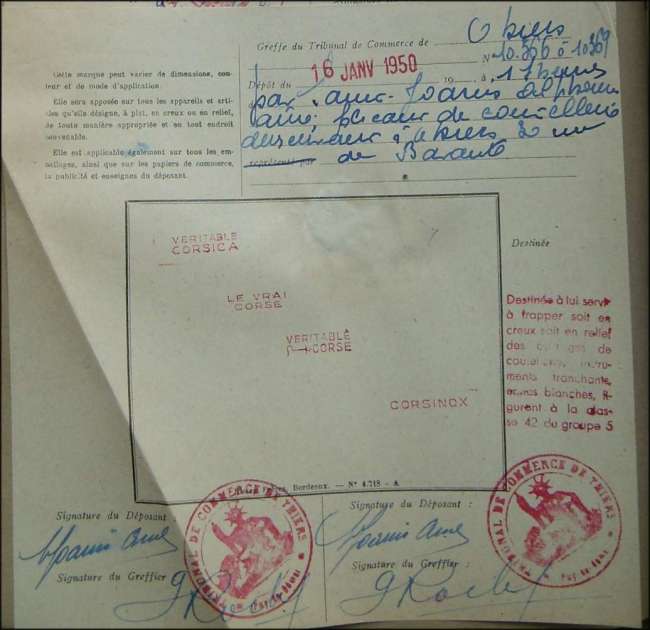 Greffe du Tribunal de Commerce de Thiers
Nº 10.366 à 10369
Dépôt du 16 JANV 1950 19 à 17 heures
par
aîné, fabricant de coutellerie
demeurant à Thiers
représenté par de Barante
Cette marque peut varier de dimensions, cou-
leur et de mode d'application.
Elle sera apposée sur tous les appareils et arti-
cles qu'elle désigne, à plat, en creux ou en relief,
de toute manière appropriée et en tout endroit
convenable.
Elle est applicable également sur tous les em-
ballages, ainsi que sur les papiers de commerce,
la publicité et enseignes du déposant.
VERITABLE
CORSICA
LE VRAI
CORSE
VERITABLE
CORSE
CORSINOX
Destinée
Destinée à lui servir
à frapper soit en
creux soit en relief
des de
coutellerie, instru-
ments tranchants,
armes blanches, fi-
gurent à la clas-
se 42 du groupe 5
Bordeaux. — Nº 4.718 - A
Signature du Déposant :
Signature du Déposant :
Signature du Greffier
Signature du Greffier :
TRIBUNAL DE COMMERCE DE THIERS
Puy de Dôme
TRIBUNAL DE COMMERCE DE THIERS
Puy de Dôme